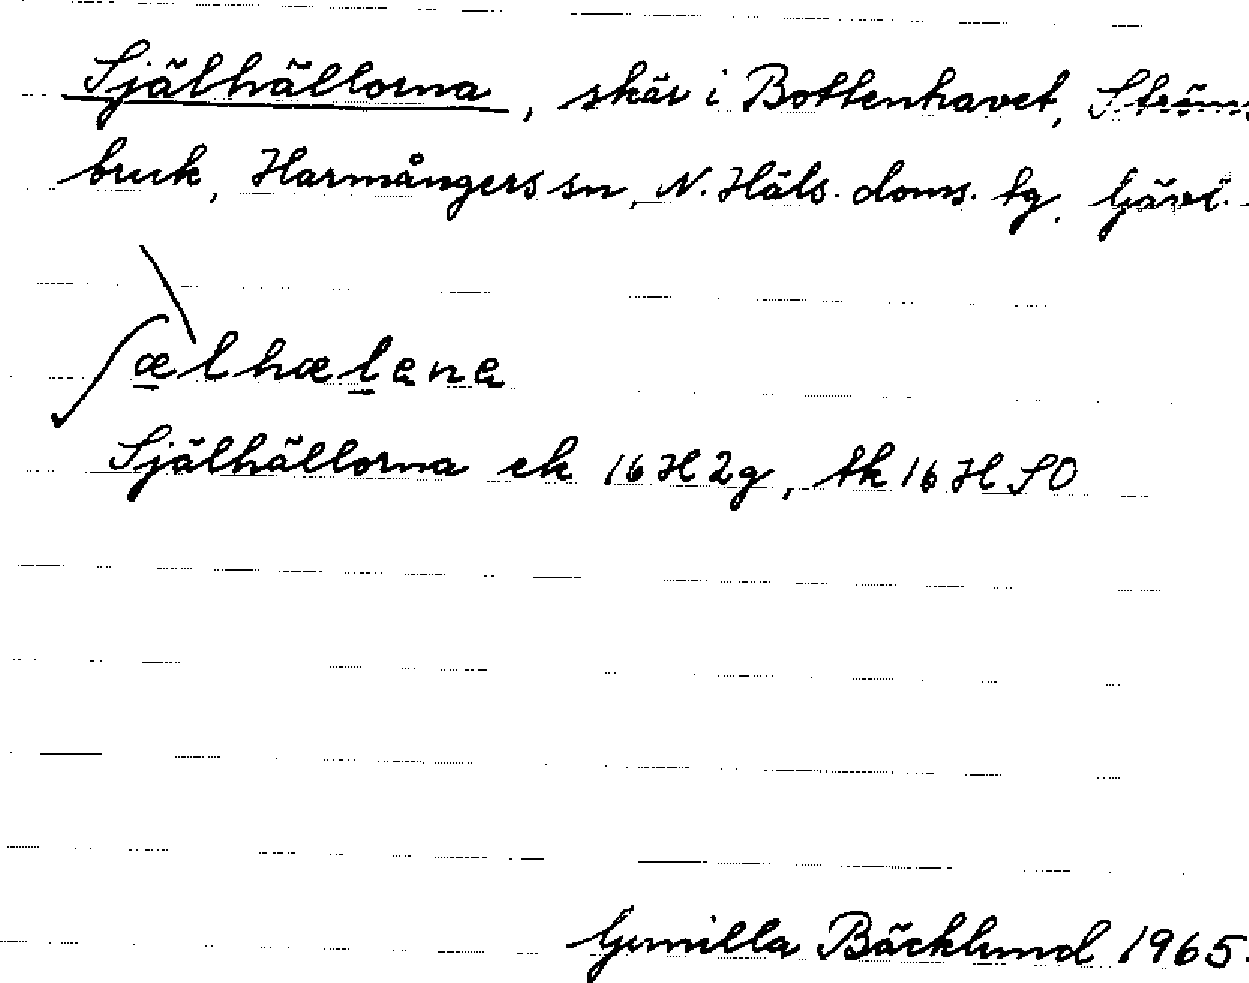 Själhällorna, skär i Bottenhavet, Ströms
bruk, Harmångers sn, N. Häls. doms. tg. Gävl.
ʃælhælena
Själhällorna ek 16H2g, tk 16H SO
Gunilla Bäcklund 1965.